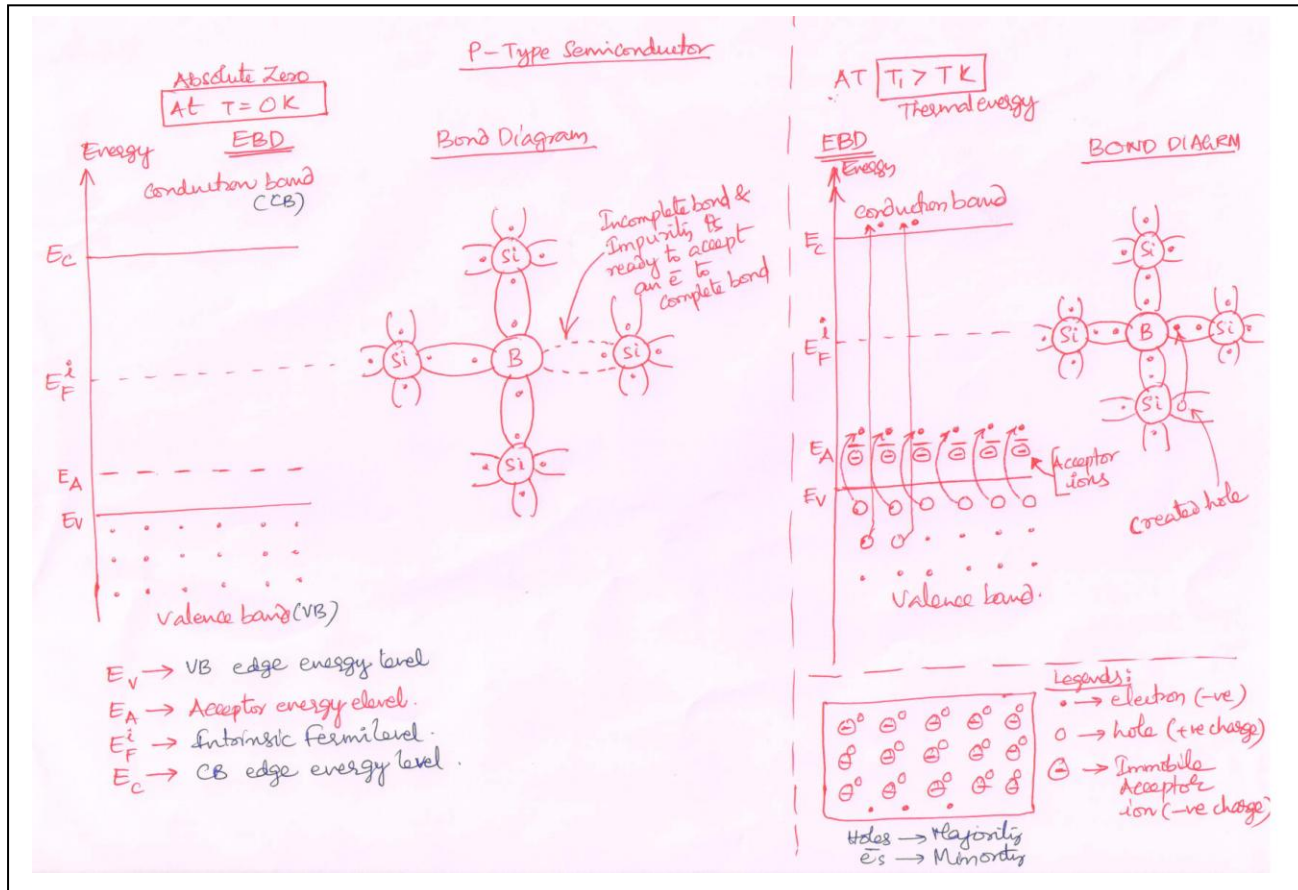 P-Type Semiconductor
Absolute Zero
At T=0K
EBD
Energy
Conduction band
(CB)
Ec
E_F^i
E_A
E_V
Valence band (VB)
Bond Diagram
Incomplete bond &
Impurity is
ready to accept
an ē to
complete bond
Si
Si
B
Si
Si
E_V → VB edge energy level
E_A → Acceptor energy elevel.
E_F^i → Intrinsic Fermilevel.
E_C → CB edge energy level.
AT T₁ > TK
Thermal energy
EBD
Energy
Conduction band
E_C
E_F^i
E_A
E_V
Acceptor
ions
Valence band.
BOND DIAGRM
Si
Si
B
Si
Si
Created hole
Legends:
• → electron (-ve)
o → hole (+ve charge)
⊖ → Immobile
Acceptor
ion (-ve charge)
Holes → Majority
ēs → Minority